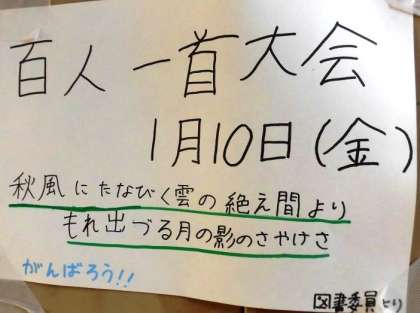 百人一首大会
1月10日(金)
秋風にたなびく雲の絶え間より
もれ出づる月の影のさやけさ
がんばろう!!
図書委員より